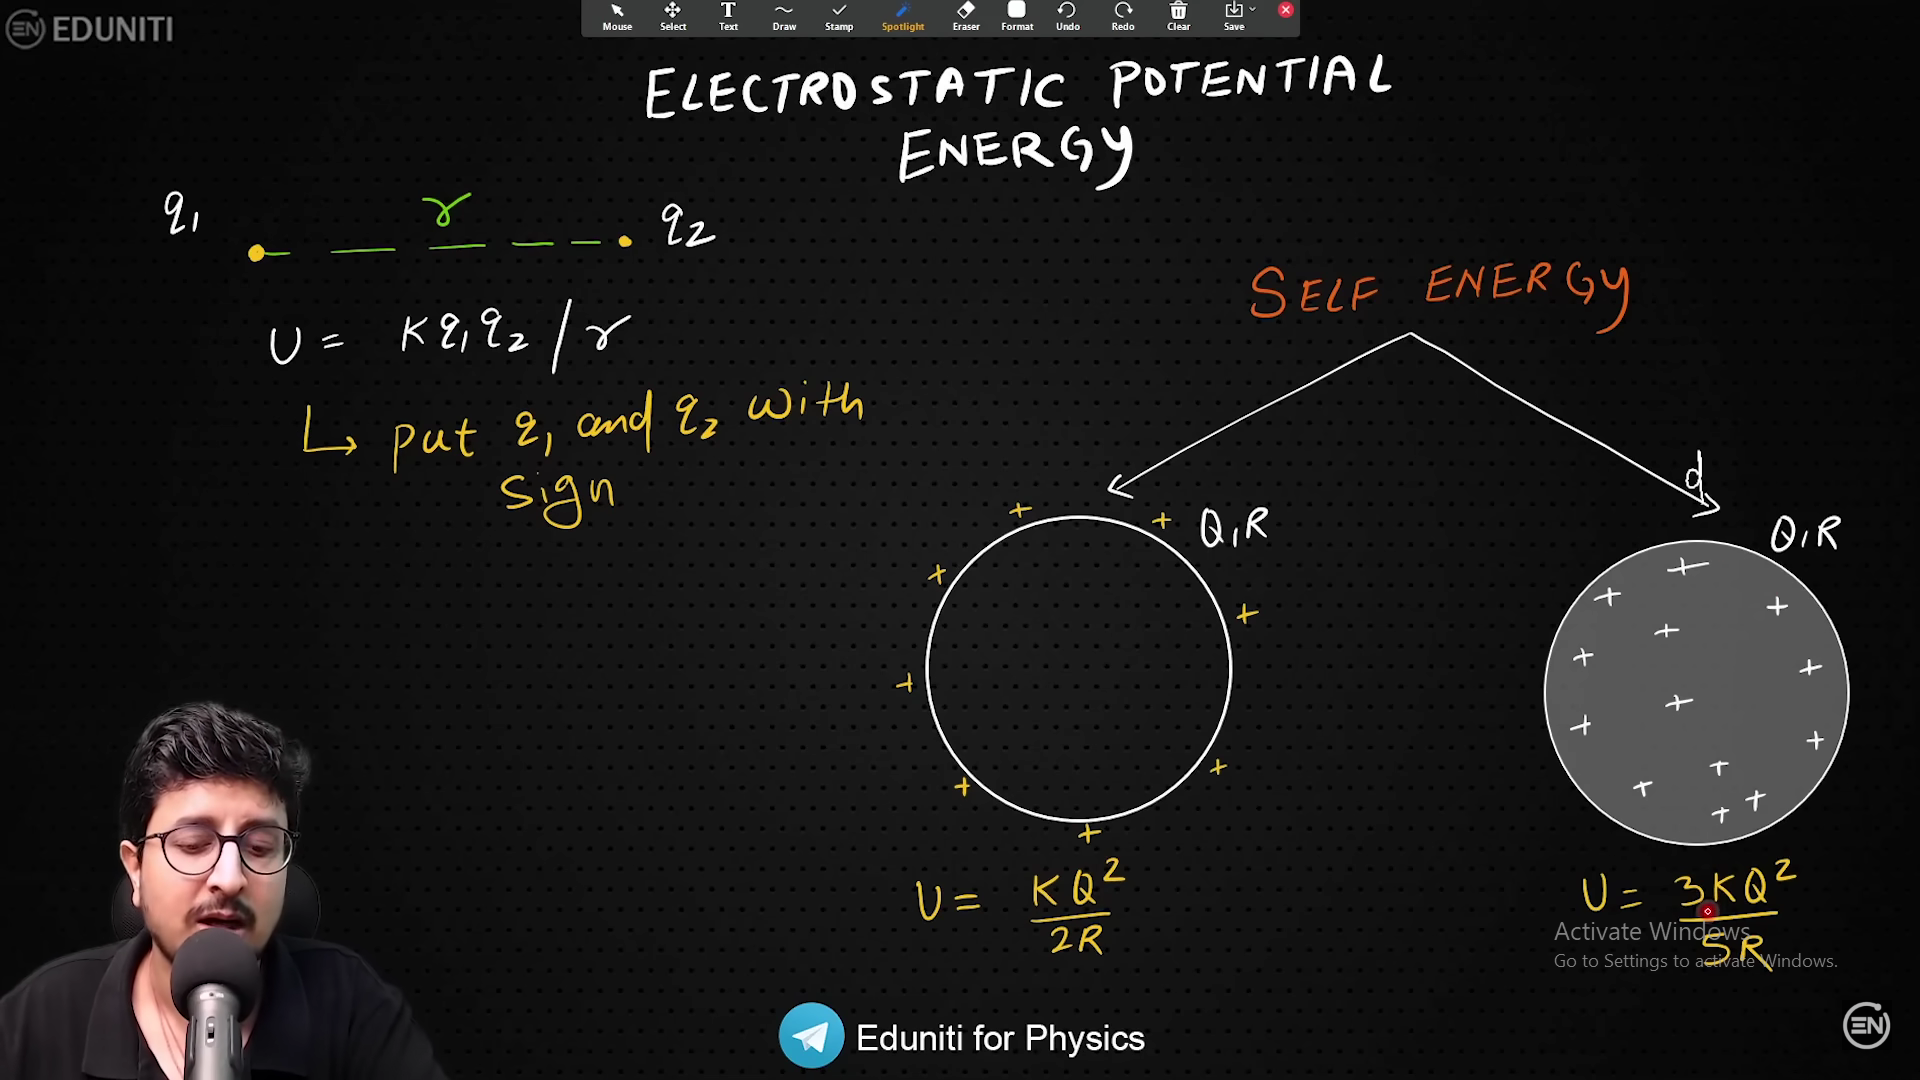 EDUNITI
Mouse Select Text Draw Stamp Spotlight Eraser Format Undo Redo Clear Save
ELECTROSTATIC POTENTIAL
ENERGY
q₁ r q₂
U = Kq₁q₂/r
↳ put q₁ and q₂ with
sign
SELF ENERGY
d
Q,R
Q,R
U = KQ²/2R
U = 3KQ²/5R
Activate Windows
Go to Settings to activate Windows.
Eduniti for Physics
EN